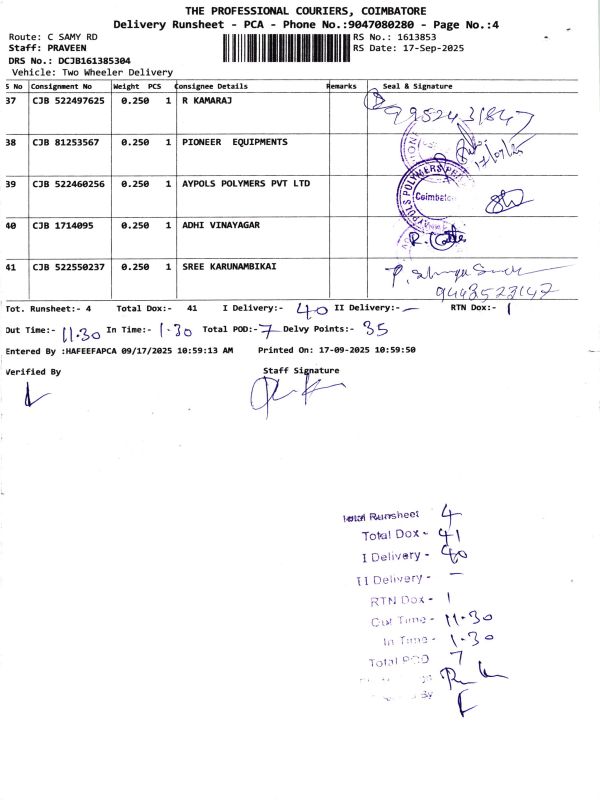 THE PROFESSIONAL COURIERS, COIMBATORE
Delivery Runsheet - PCA - Phone No.:9047080280 - Page No.:4
Route: C SAMY RD RS No.: 1613853
Staff: PRAVEEN RS Date: 17-Sep-2025
DRS No.: DCJB161385304
Vehicle: Two Wheeler Delivery
S No Consignment No Weight PCS Consignee Details Remarks Seal & Signature
37 CJB 522497625 0.250 1 R KAMARAJ 9952431847
38 CJB 81253567 0.250 1 PIONEER EQUIPMENTS
39 CJB 522460256 0.250 1 AYPOLS POLYMERS PVT LTD
Coimbatore
40 CJB 1714095 0.250 1 ADHI VINAYAGAR
41 CJB 522550237 0.250 1 SREE KARUNAMBIKAI
9443523147
Tot. Runsheet:- 4 Total Dox:- 41 I Delivery:- 40 II Delivery:- — RTN Dox:- 1
Out Time:- 11.30 In Time:- 1.30 Total POD:- 7 Delvy Points:- 35
Entered By :HAFEEFAPCA 09/17/2025 10:59:13 AM Printed On: 17-09-2025 10:59:50
Verified By Staff Signature
Total Runsheet 4
Total Dox - 41
I Delivery - 40
II Delivery - —
RTN Dox - 1
Out Time - 11.30
In Time - 1.30
Total POD 7
By